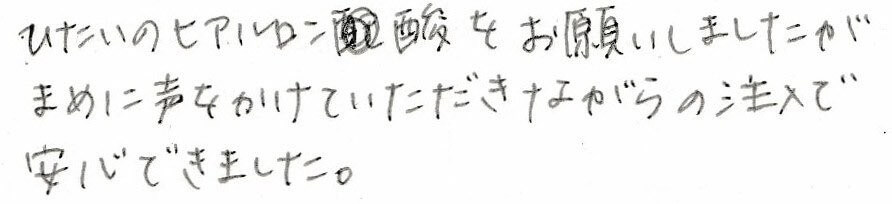 ひたいのヒアルロン酸をお願いしましたが
まめに声をかけていただきながらの注入で
安心できました。